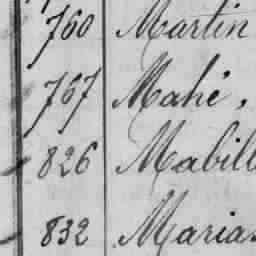 760 Martin
767 Mahé,
826 Mabill
832 Marias